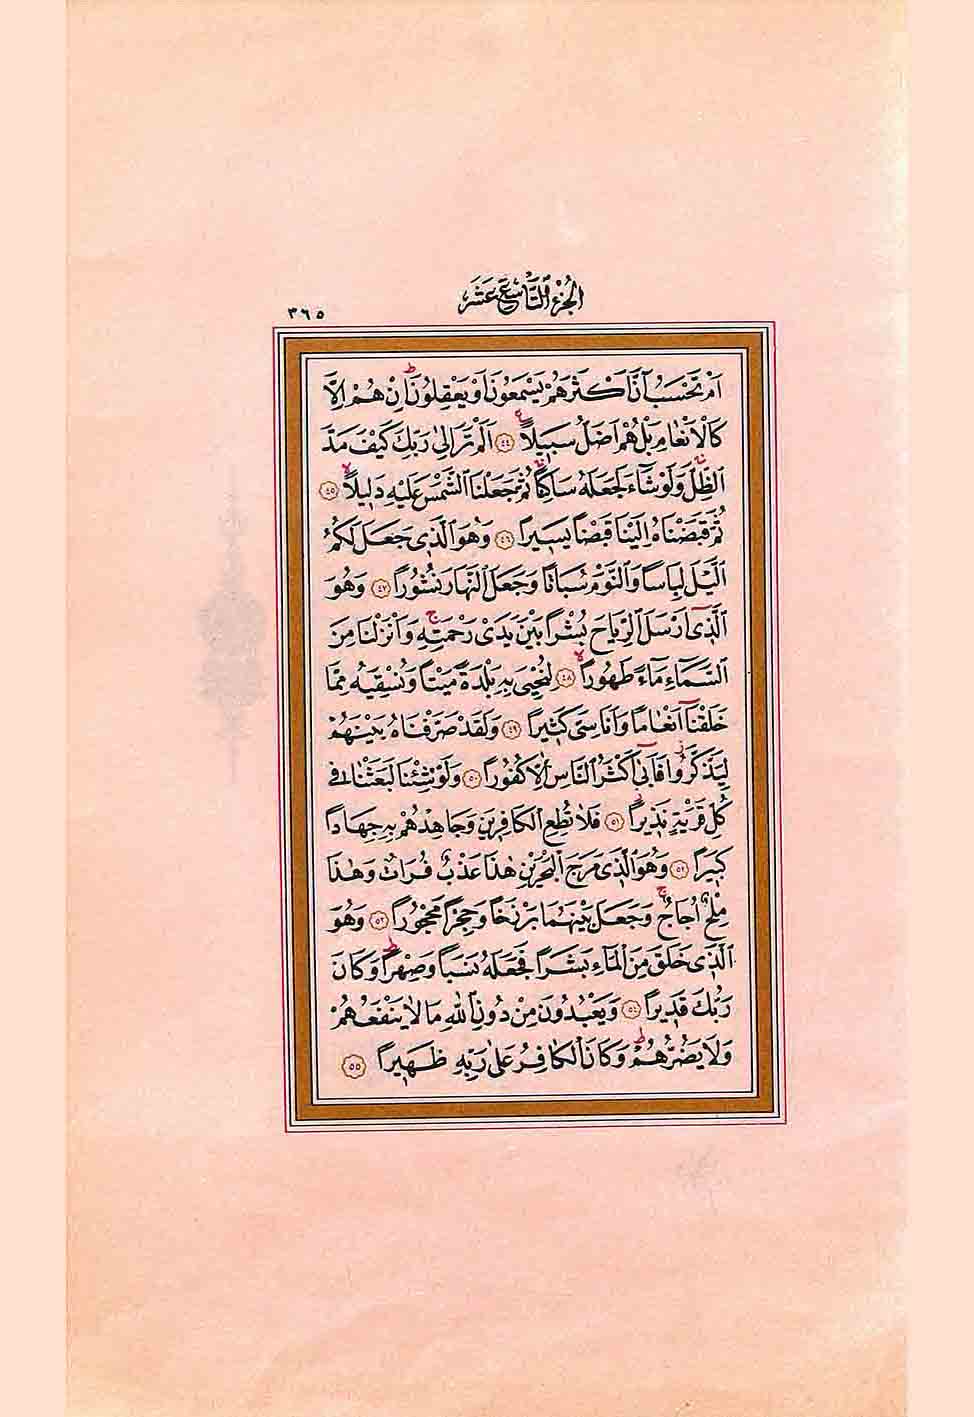 اَلْجُزْءُ التَّاسِعَ عَشَرَ
٣٦٥
اَمْ تَحْسَبُ اَنَّ اَكْثَرَهُمْ يَسْمَعُونَ اَوْ يَعْقِلُونَۜ اِنْ هُمْ اِلَّا
كَالْاَنْعَامِ بَلْ هُمْ اَضَلُّ سَبٖيلًا ٤٤ اَلَمْ تَرَ اِلٰى رَبِّكَ كَيْفَ مَدَّ
الظِّلَّ وَلَوْ شَٓاءَ لَجَعَلَهُ سَاكِنًا ثُمَّ جَعَلْنَا الشَّمْسَ عَلَيْهِ دَلٖيلًا ٤٥
ثُمَّ قَبَضْنَاهُ اِلَيْنَا قَبْضًا يَسٖيرًا ٤٦ وَهُوَ الَّذٖى جَعَلَ لَكُمُ
الَّيْلَ لِبَاسًا وَالنَّوْمَ سُبَاتًا وَجَعَلَ النَّهَارَ نُشُورًا ٤٧ وَهُوَ
الَّذٖٓى اَرْسَلَ الرِّيَاحَ بُشْرًا بَيْنَ يَدَىْ رَحْمَتِهٖ وَاَنْزَلْنَا مِنَ
السَّمَٓاءِ مَٓاءً طَهُورًا ٤٨ لِنُحْيِىَ بِهٖ بَلْدَةً مَيْتًا وَنُسْقِيَهُ مِمَّا
خَلَقْنَٓا اَنْعَامًا وَاَنَاسِىَّ كَثٖيرًا ٤٩ وَلَقَدْ صَرَّفْنَاهُ بَيْنَهُمْ
لِيَذَّكَّرُوا فَاَبٰٓى اَكْثَرُ النَّاسِ اِلَّا كُفُورًا ٥٠ وَلَوْ شِئْنَا لَبَعَثْنَا فٖى
كُلِّ قَرْيَةٍ نَذٖيرًا ٥١ فَلَا تُطِعِ الْكَافِرٖينَ وَجَاهِدْهُمْ بِهٖ جِهَادًا
كَبٖيرًا ٥٢ وَهُوَ الَّذٖى مَرَجَ الْبَحْرَيْنِ هٰذَا عَذْبٌ فُرَاتٌ وَهٰذَا
مِلْحٌ اُجَاجٌ وَجَعَلَ بَيْنَهُمَا بَرْزَخًا وَحِجْرًا مَحْجُورًا ٥٣ وَهُوَ
الَّذٖى خَلَقَ مِنَ الْمَٓاءِ بَشَرًا فَجَعَلَهُ نَسَبًا وَصِهْرًا وَكَانَ
رَبُّكَ قَدٖيرًا ٥٤ وَيَعْبُدُونَ مِنْ دُونِ اللّٰهِ مَا لَا يَنْفَعُهُمْ
وَلَا يَضُرُّهُمْ وَكَانَ الْكَافِرُ عَلٰى رَبِّهٖ ظَهٖيرًا ٥٥